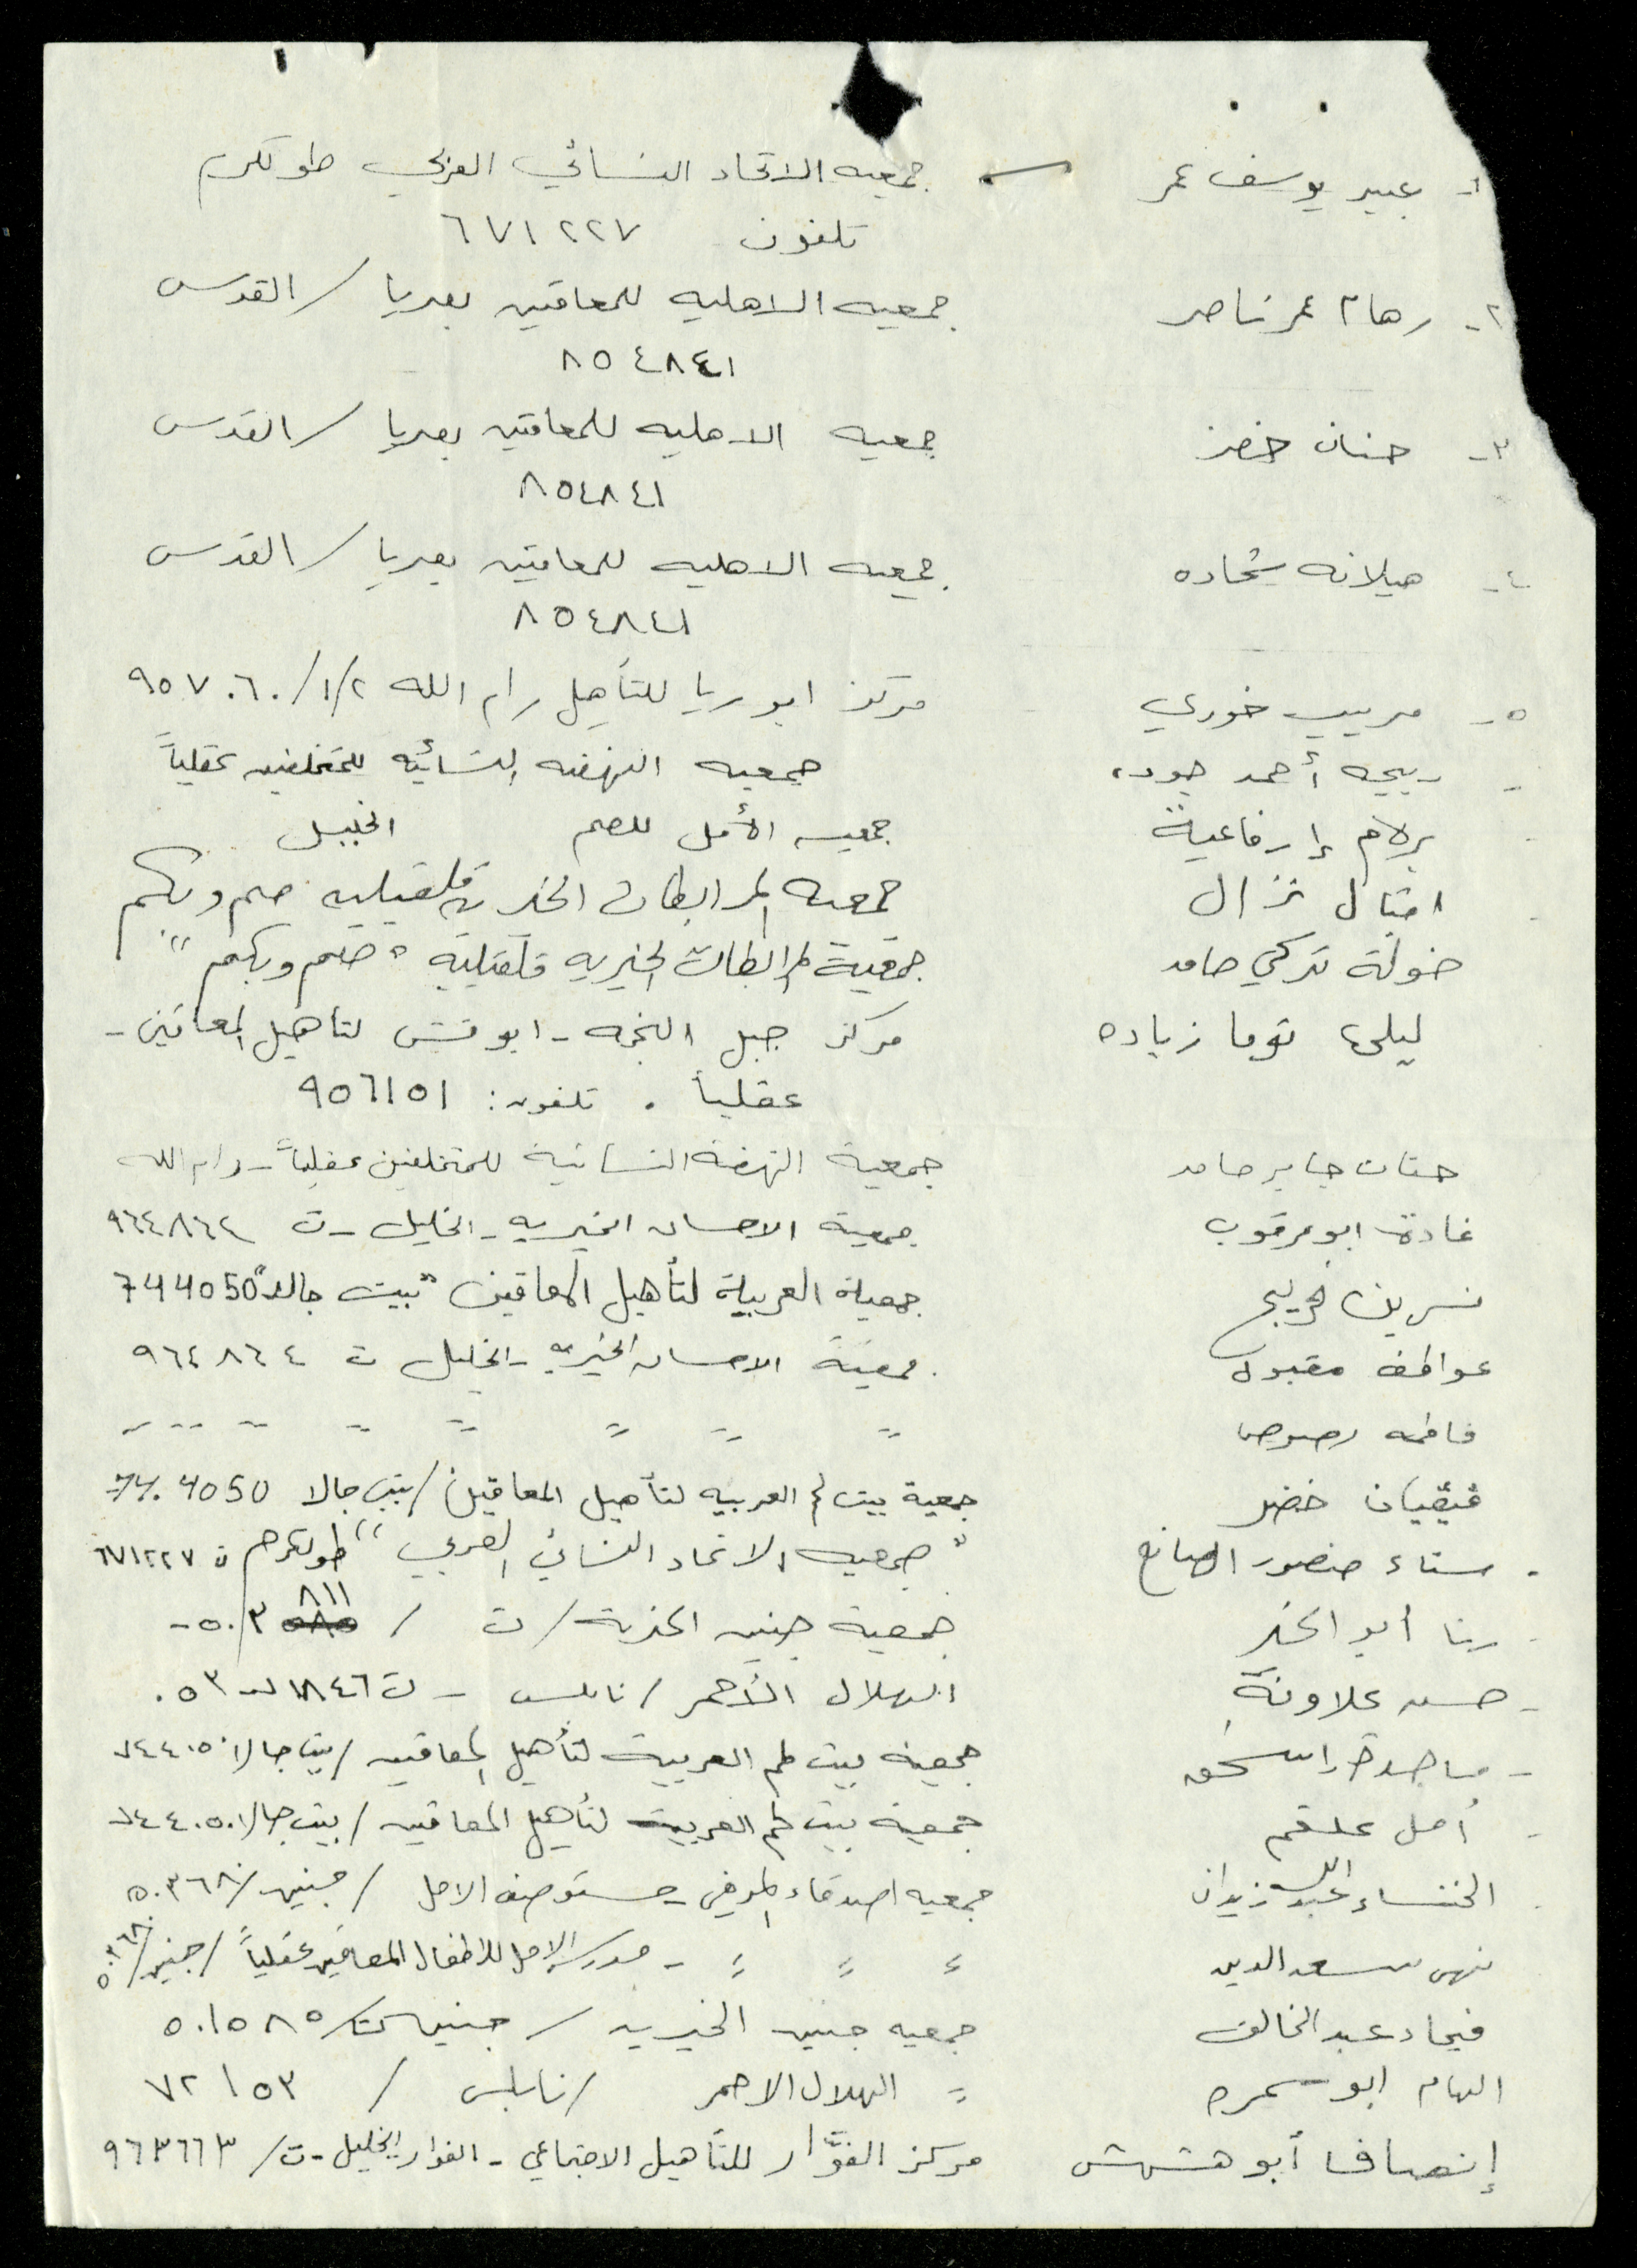 ١- عبير يوسف عمر جمعيه الاتحاد النسائي العربي طولكرم
تلفون ٦٧١٢٢٧
٢- رهام عمر ناصر جمعيه الاهليه للمعاقين بصريا / القدس
٨٥٤٨٤١
٣- حنان خضر جمعيه الاهليه للمعاقين بصريا / القدس
٨٥٤٨٤١
٤- هيلانه شحاده جمعيه الاهليه للمعاقين بصريا / القدس
٨٥٤٨٤١
٥- خوري مركز ابو ريا للتأهيل رام الله ٩٥٧٠٦٠/١/٢
- ربيحه أحمد جمعيه النهضه النسائيه للمتخلفين عقلياً
إرفاعية جمعيه الأمل للصم الخليل
امثال نزال جمعيه المرابطات الخيرية قلقيليه صم وبكم
خولة تركي حامد جمعية المرابطات الخيريه قلقيلية "صم وبكم"
ليلى توما زياده مركز جبل النجمه - ابو قش لتاهيل المعاقين -
عقلياً . تلفون: ٩٥٦١٥١
حنان جابر حامد جمعية النهضة النسائية للمتخلفين عقلياً - رام الله
غادة ابو مرقوب جمعية الاحسان الخيريه - الخليل - ت ٩٦٤٨٦٤
نسرين جمعية العربية لتأهيل المعاقين "بيت جالا" 744050
عواطف مقبول جمعية الاحسان الخيريه - الخليل ت ٩٦٤٨٦٤
فاطمه رصرص = = = = = = = =
خضر جمعية بيت لحم العربيه لتأهيل المعاقين / بيت جالا 4050
. سناء منصور الصانع "جمعيه الاتحاد النسائي العربي" طولكرم ت ٦٧١٢٢٧
- رنا أبو الخير جمعية جنين الخيرية / ت / ٨١١ ٥٠٣-
- حسن علاونة الهلال الأحمر / نابلس -
- ماجدة اسحق جمعية بيت لحم العربية لتأهيل المعاقين / بيت جالا ٧٤٤٠٥٠
- أمل علقم جمعية بيت لحم العربية لتأهيل المعاقين / بيت جالا ٧٤٤٠٥٠
- الخنساء عبد الله زيدان جمعيه اصدقاء المريض - مستوصف الامل / جنين / ٥٠٣٦٨٠
نهى سعد الدين = = = - مدرسة الامل للاطفال المعاقين عقلياً / جنين /
عبد الخالق جمعيه جنين الخيريه / جنين ٥٠١٥٨٥
الهام ابو سمره = الهلال الاحمر / نابلس /
إنصاف أبو هشهش مركز الفوّار للتأهيل الاجتماعي - الفوار - الخليل - ت / ٩٦٣٦٦٣